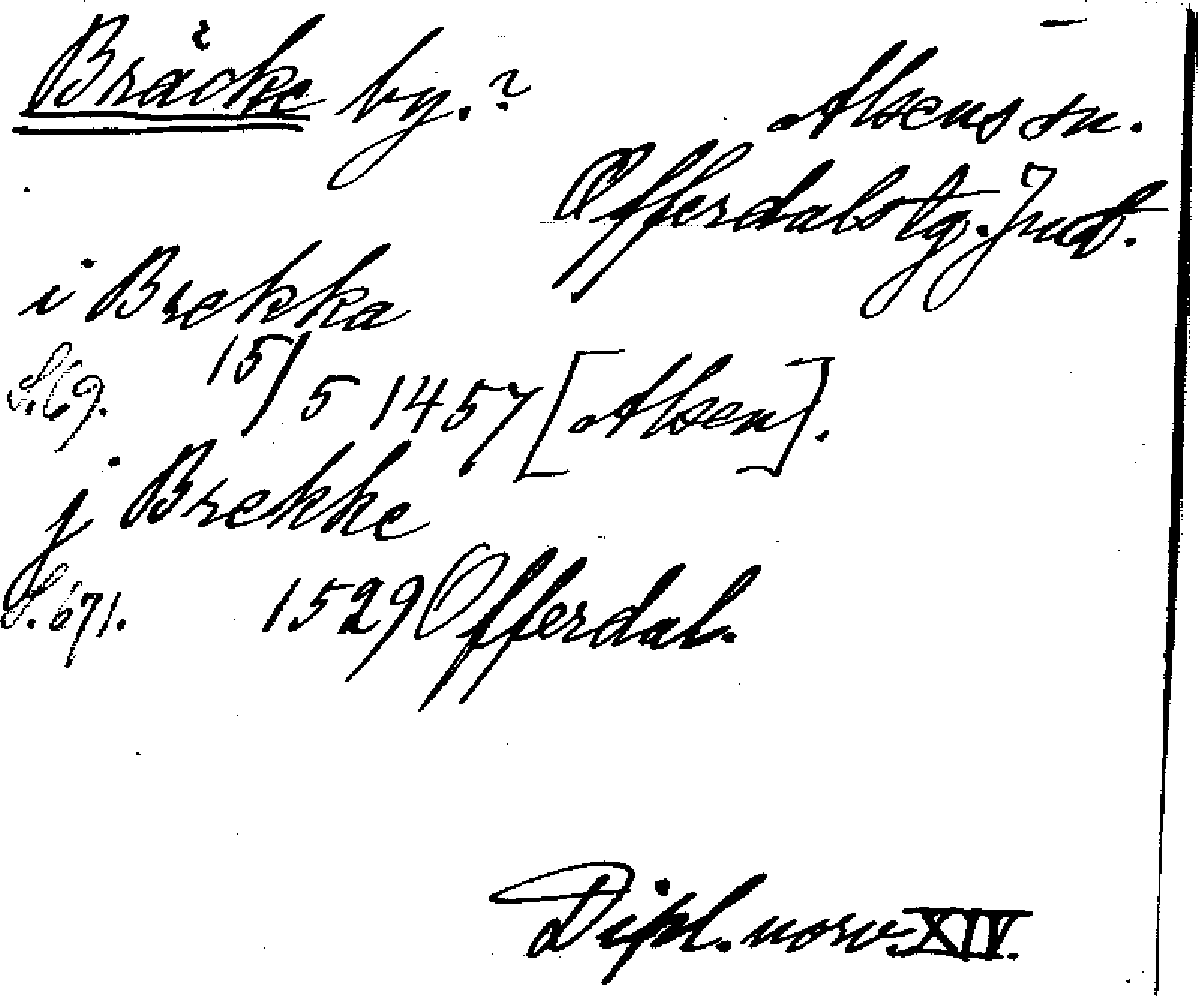 Bräcke by.?
Alsens sn.
Offerdals tg. Jmtl.
i Brekka
S. 69. 15/5 1457 [Alsen].
j Brekke
S. 671. 1529 Offerdal.
Dipl. norv. XIV.